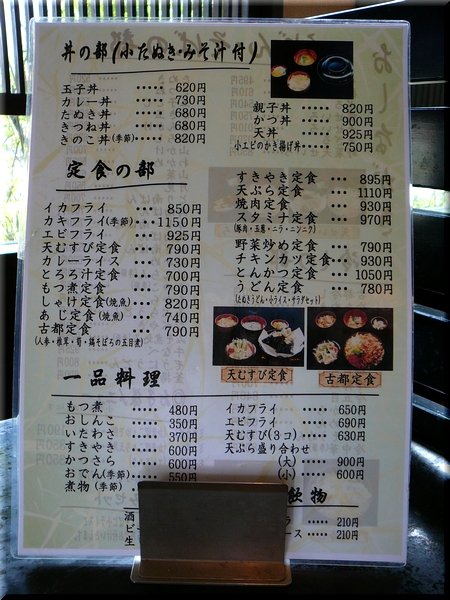 丼の部(小たぬき・みそ汁付)
玉子丼 ‥‥ 620円
カレー丼 ‥‥ 730円
たぬき丼 ‥‥ 680円
きつね丼 ‥‥ 680円
きのこ丼(季節)‥‥ 820円
親子丼 ‥‥‥ 820円
かつ丼 ‥‥‥ 900円
天丼 ‥‥‥ 925円
小エビのかき揚げ丼 ‥‥ 750円
定食の部
イカフライ ‥‥ 850円
カキフライ(季節)‥‥ 1150円
エビフライ ‥‥ 925円
天むすび定食 ‥‥ 790円
カレーライス ‥‥ 730円
とろろ汁定食 ‥‥ 700円
もつ煮定食 ‥‥ 790円
しゃけ定食(焼魚)‥‥ 820円
あじ定食(焼魚)‥‥ 740円
古都定食 ‥‥ 790円
(人参・椎茸・筍・鶏そぼろの五目煮)
すきやき定食 ‥‥ 895円
天ぷら定食 ‥‥ 1110円
焼肉定食 ‥‥ 930円
スタミナ定食 ‥‥ 970円
(豚肉・玉葱・ニラ・ニンニク)
野菜炒め定食 ‥‥ 790円
チキンカツ定食 ‥‥ 930円
とんかつ定食 ‥‥ 1050円
うどん定食 ‥‥ 780円
(たぬきうどん・小ライス・サラダセット)
天むすび定食
古都定食
一品料理
もつ煮 ‥‥‥ 480円
おしんこ ‥‥‥ 350円
いたわさ ‥‥‥ 370円
すきやき ‥‥‥ 600円
かつさら ‥‥‥ 600円
おでん(季節)‥‥ 550円
煮物(季節)
イカフライ ‥‥‥ 650円
エビフライ ‥‥‥ 690円
天むすび(3コ)‥‥ 630円
天ぷら盛り合わせ
(大)‥‥ 900円
(小)‥‥ 600円
飲物
酒
ビ
生
ラ ‥‥‥ 210円
ース ‥‥‥ 210円